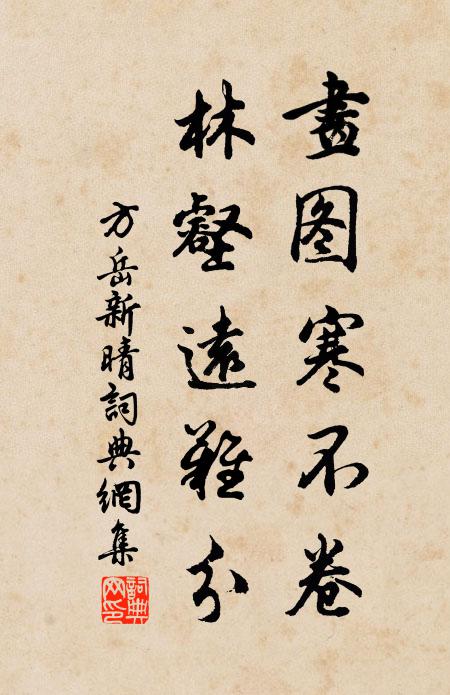 畫图寒不卷
林壑遠難分
方岳新晴詞典網集
詞典网印